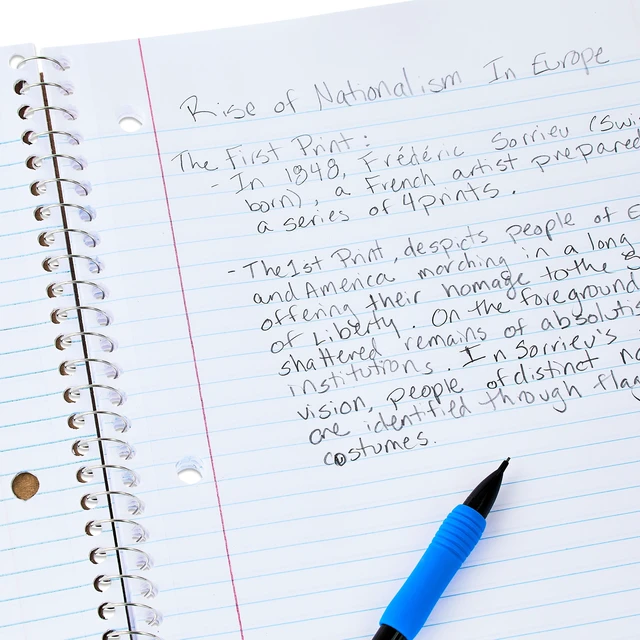 Rise of Nationalism In Europe
The First Print:
- In 1848, Frédéric Sorrieu
born), a French artist prepared
a series of 4 prints.
- The 1st Print, despicts people of
and America marching in a long
offering their homage to the
of Liberty. On the foreground
shattered remains of
institutions. In Sorrieu's
vision, people of distinct
are identified through
costumes.